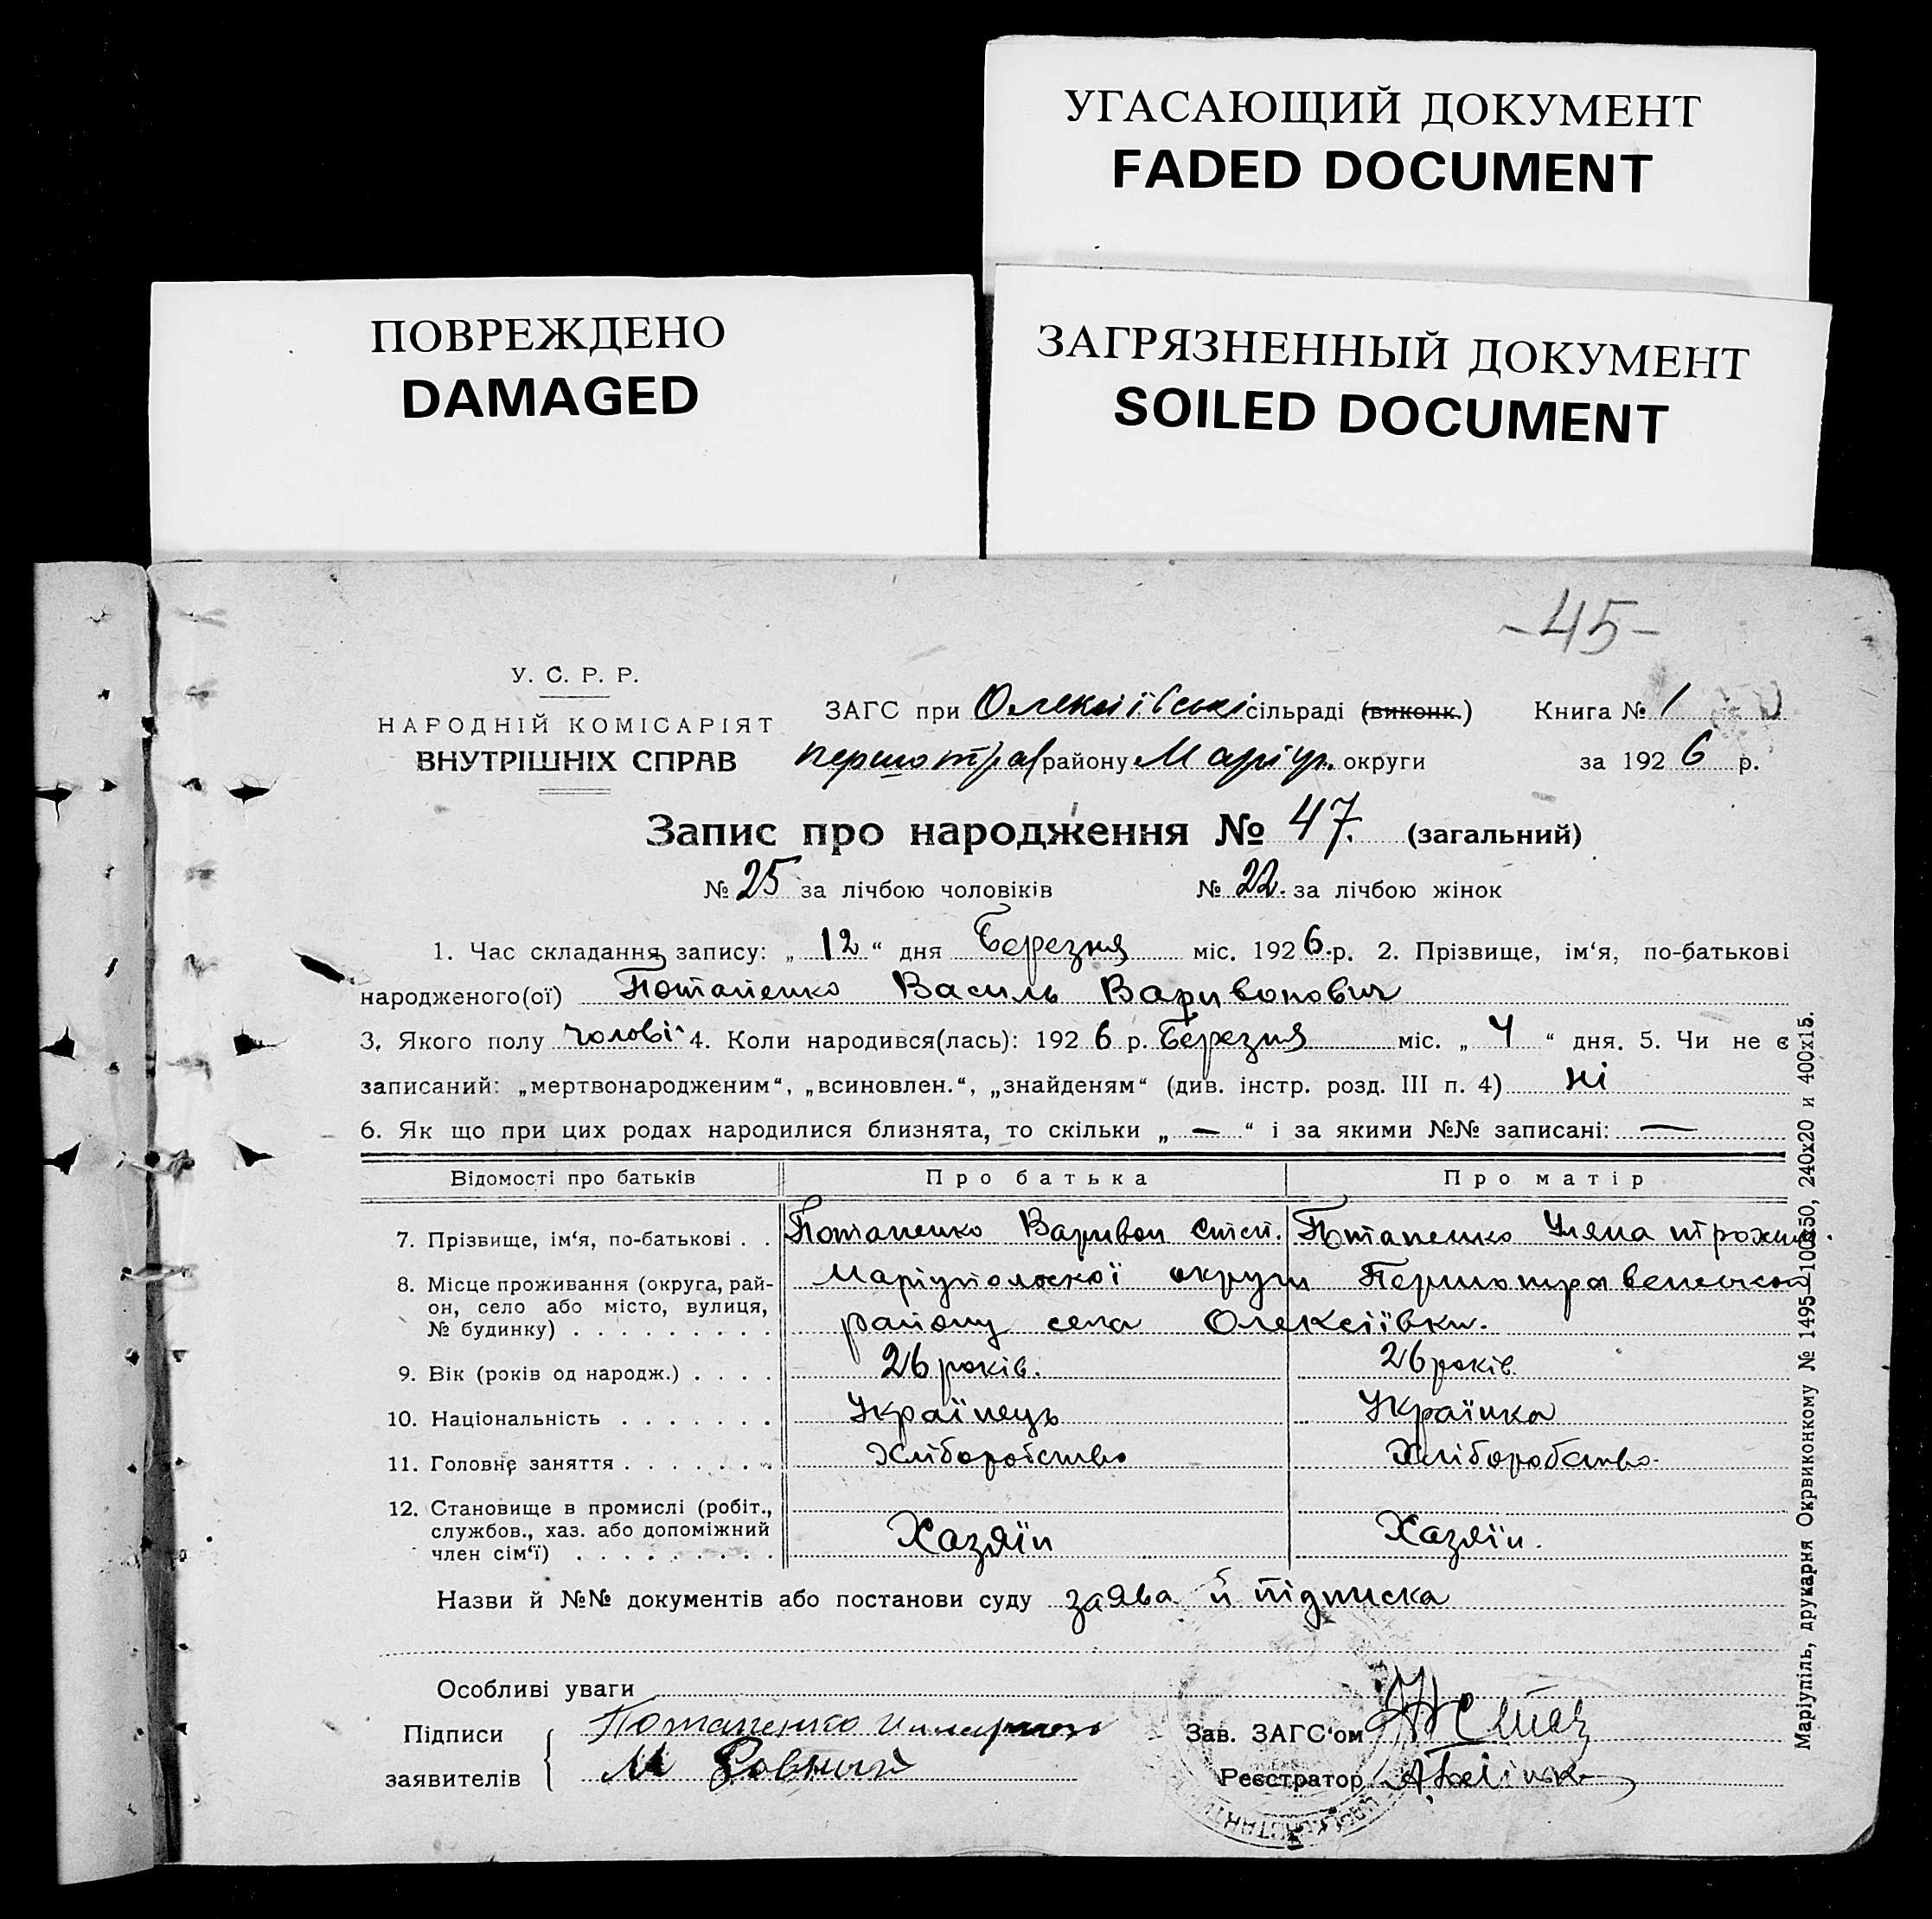 УГАСАЮЩИЙ ДОКУМЕНТ
FADED DOCUMENT
ПОВРЕЖДЕНО
DAMAGED
ЗАГРЯЗНЕННЫЙ ДОКУМЕНТ
SOILED DOCUMENT
-45-
У. С. Р. Р.
НАРОДНІЙ КОМІСАРІЯТ
ВНУТРІШНІХ СПРАВ
ЗАГС при Олексіївські сільраді (виконк.) Книга № 1
першотрав району Маріуп. округи за 1926 р.
Запис про народження № 47. (загальний)
№ 25 за лічбою чоловіків № 22. за лічбою жінок
1. Час складання запису: „ 12 “ дня Березня міс. 1926.р. 2. Прізвище, ім‘я, по-батькові
народженого(ої) Потапенко Василь Варивонович
3. Якого полу чолові 4. Коли народився(лась): 1926 р. Березня міс. „ 4 “ дня. 5. Чи не є
записаний: „мертвонародженим“, „всиновлен.“, „знайденям“ (див. інстр. розд. III п. 4) ні
6. Як що при цих родах народилися близнята, то скільки „ — “ і за якими №№ записані: —
Відомості про батьків Про батька Про матір
7. Прізвище, ім‘я, по-батькові . . Потапенко Варивон Степ. Потапенко Уляна
8. Місце проживання (округа, рай-
он, село або місто, вулиця,
№ будинку) . . . . . . . . .
Маріупольскої округи Першотравенського
району села Олексіївки.
9. Вік (років од народж.) . . . . 26 років. 26 років.
10. Національність . . . . . . . Українець Українка
11. Головне заняття . . . . . . . Хліборобство Хліборобство.
12. Становище в промислі (робіт.,
службов., хаз. або допоміжний
член сім‘ї) . . . . . . . . .
Хазяїн Хазяїн.
Назви й №№ документів або постанови суду заява й підписка
Особливі уваги
Підписи
заявителів
Потапенко
М Ровний
Зав. ЗАГС‘ом
Реєстратор
Маріупіль, друкарня Окрвиконкому № 1495—100х50, 240х20 и 400х15.